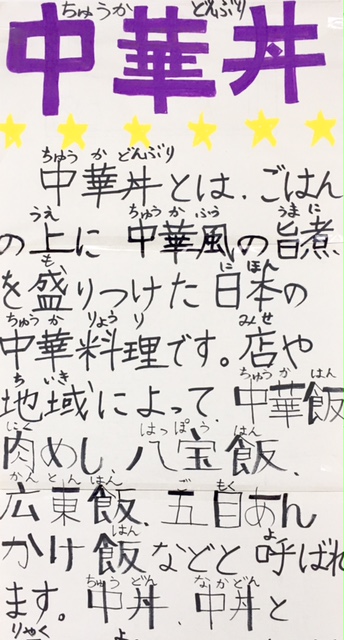 ちゅうか どんぶり
中華丼
ちゅう か どんぶり
中華丼とは、ごはん
うえ ちゅう か ふう うま に
の上に 中華風の旨煮
も にほん
を盛りつけた日本の
ちゅう か りょう り みせ
中華料理です。店や
ち いき ちゅう か はん
地域によって、中華飯
にく はっぽう はん
肉めし、八宝飯、
かん とん はん ご もく
広東飯、五目あん
はん よ
かけ飯などと呼ばれ
ちゅう どん なか どん
ます。中丼、中丼と
りゃく